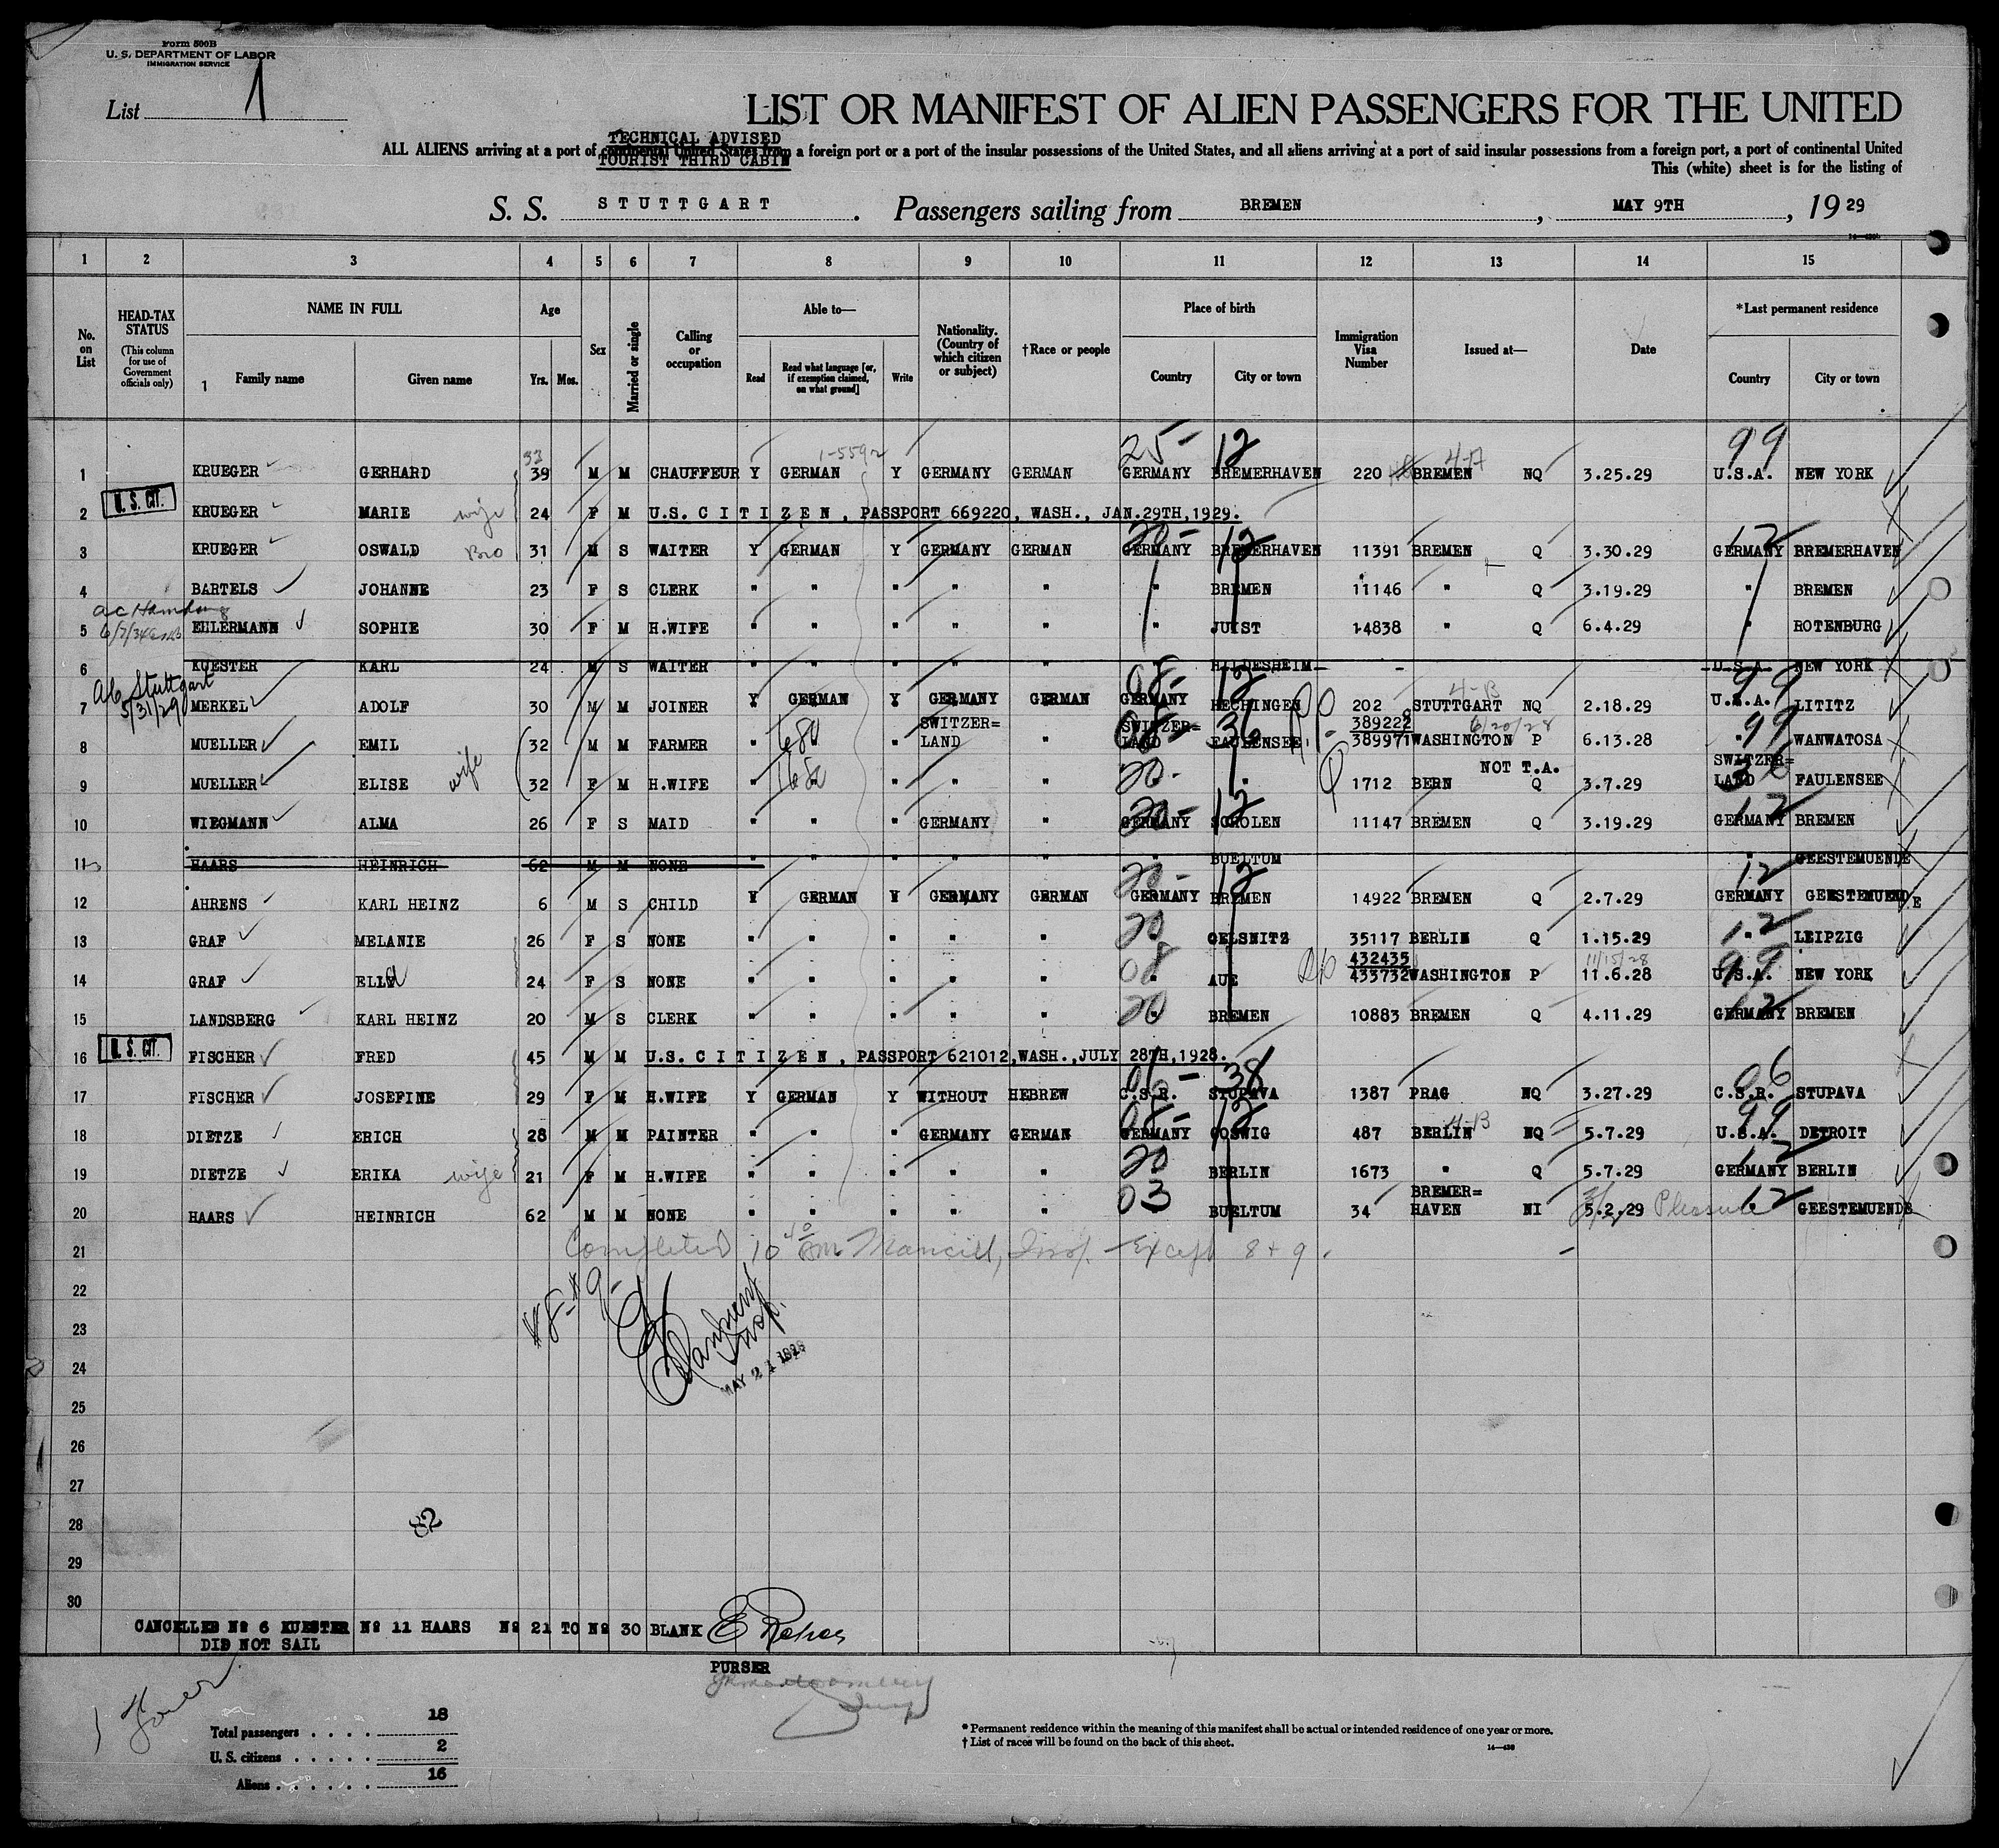 Form 500B
U. S. DEPARTMENT OF LABOR
IMMIGRATION SERVICE
List 1
LIST OR MANIFEST OF ALIEN PASSENGERS FOR THE UNITED
TECHNICAL ADVISED
ALL ALIENS arriving at a port of continental United States from a foreign port or a port of the insular possessions of the United States, and all aliens arriving at a port of said insular possessions from a foreign port, a port of continental United
TOURIST THIRD CABIN
This (white) sheet is for the listing of
S. S. STUTTGART. Passengers sailing from BREMEN, MAY 9TH, 1929
1 2 3 4 5 6 7 8 9 10 11 12 13 14 15
No. on List
HEAD-TAX STATUS
(This column for use of Government officials only)
NAME IN FULL
1 Family name
Given name
Age
Yrs. Mos.
Sex
Married or single
Calling or occupation
Able to—
Read
Read what language [or, if exemption claimed, on what ground]
Write
Nationality. (Country of which citizen or subject)
†Race or people
Place of birth
Country City or town
Immigration Visa Number
Issued at—
Date
*Last permanent residence
Country City or town
33 1-5592 25- 12 4-A 99
1 KRUEGER GERHARD 39 M M CHAUFFEUR Y GERMAN Y GERMANY GERMAN GERMANY BREMERHAVEN 220 BREMEN NQ 3.25.29 U.S.A. NEW YORK
U. S. CIT.
2 KRUEGER MARIE wife 24 F M U.S. CITIZEN, PASSPORT 669220, WASH., JAN.29TH,1929.
20- 12 12
3 KRUEGER OSWALD Bro 31 M S WAITER Y GERMAN Y GERMANY GERMAN GERMANY BREMERHAVEN 11391 BREMEN Q 3.30.29 GERMANY BREMERHAVEN
4 BARTELS JOHANNE 23 F S CLERK " " " " " " BREMEN 11146 " Q 3.19.29 " BREMEN
ac Hamburg
6/7/34
5 EULERMANN SOPHIE 30 F M H.WIFE " " " " " " JUIST 14838 " Q 6.4.29 " ROTENBURG
6 KUESTER KARL 24 M S WAITER " " " " " " HILDESHEIM - - U.S.A. NEW YORK
a/c Stuttgart
5/31/29
08- 12 4-B 99
7 MERKEL ADOLF 30 M M JOINER Y GERMAN Y GERMANY GERMAN GERMANY HECHINGEN 202 STUTTGART NQ 2.18.29 U.S.A. LITITZ
680 08- 36 389222 6/20/28 99
8 MUELLER EMIL 32 M M FARMER " " " SWITZER=LAND " SWITZER=LAND FAULENSEE 389971 WASHINGTON P 6.13.28 " WANWATOSA
NOT T.A.
20- 36
9 MUELLER ELISE wife 32 F M H.WIFE " " " " " " " 1712 BERN Q 3.7.29 SWITZER=LAND FAULENSEE
20- 12 12
10 WIEGMANN ALMA 26 F S MAID " " " GERMANY " GERMANY SCHOLEN 11147 BREMEN Q 3.19.29 GERMANY BREMEN
11 HAARS HEINRICH 62 M M NONE " " " " " " BUELTUM " GEESTEMUENDE
20- 12 12
12 AHRENS KARL HEINZ 6 M S CHILD Y GERMAN Y GERMANY GERMAN GERMANY BREMEN 14922 BREMEN Q 2.7.29 GERMANY GEESTEMUENDE
20 12
13 GRAF MELANIE 26 F S NONE " " " " " " OELSNITZ 35117 BERLIN Q 1.15.29 " LEIPZIG
08 432435 11/15/28 99
14 GRAF ELLA 24 F S NONE " " " " " " AUE 433732 WASHINGTON P 11.6.28 U.S.A. NEW YORK
20 12
15 LANDSBERG KARL HEINZ 20 M S CLERK " " " " " " BREMEN 10883 BREMEN Q 4.11.29 GERMANY BREMEN
U. S. CIT.
16 FISCHER FRED 45 M M U.S. CITIZEN, PASSPORT 621012,WASH.,JULY 28TH,1928.
38 06
17 FISCHER JOSEFINE 29 F M H.WIFE Y GERMAN Y WITHOUT HEBREW C.S.R. STUPAVA 1387 PRAG NQ 3.27.29 C.S.R. STUPAVA
08- 12 4-B 99
18 DIETZE ERICH 28 M M PAINTER " " " GERMANY GERMAN GERMANY COSWIG 487 BERLIN NQ 5.7.29 U.S.A. DETROIT
20 12
19 DIETZE ERIKA wife 21 F M H.WIFE " " " " " " BERLIN 1673 " Q 5.7.29 GERMANY BERLIN
03 Pleasure 12
20 HAARS HEINRICH 62 M M NONE " " " " " " BUELTUM 34 BREMER=HAVEN NI 5.2.29 " GEESTEMUENDE
21 Completed 10 40 AM Mancill, Insp. Except 8 + 9.
22
#8-#9-
23
Insp.
24
MAY 21 1929
25
26
27
28 82
29
30
CANCELLED No 6 KUESTER No 11 HAARS No 21 TO No 30 BLANK
DID NOT SAIL
PURSER
Total passengers . . . . 18
U. S. citizens . . . . . 2
Aliens . . . . . . 16
* Permanent residence within the meaning of this manifest shall be actual or intended residence of one year or more.
† List of races will be found on the back of this sheet.
14—438